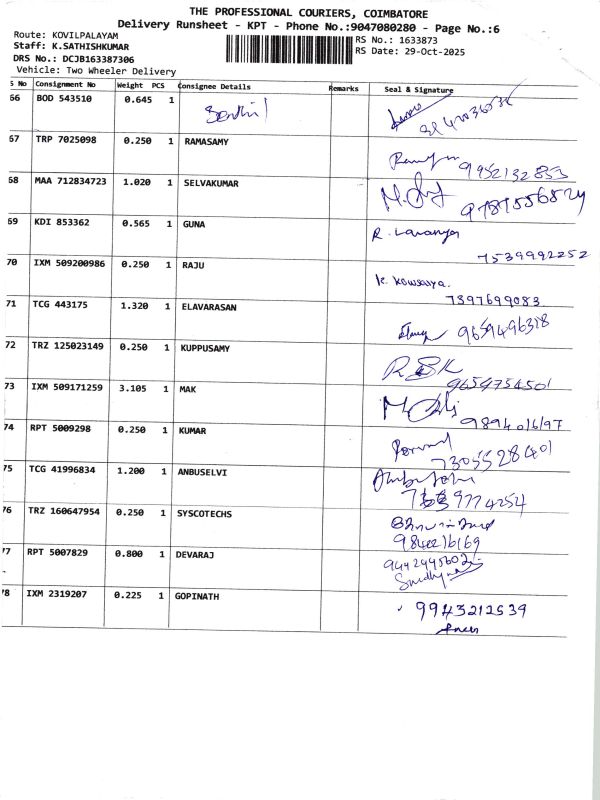 THE PROFESSIONAL COURIERS, COIMBATORE
Delivery Runsheet - KPT - Phone No.:9047080280 - Page No.:6
Route: KOVILPALAYAM
Staff: K.SATHISHKUMAR
DRS No.: DCJB163387306
Vehicle: Two Wheeler Delivery
RS No.: 1633873
RS Date: 29-Oct-2025
S No Consignment No Weight PCS Consignee Details Remarks Seal & Signature
66 BOD 543510 0.645 1 Senthil
67 TRP 7025098 0.250 1 RAMASAMY
9952132853
68 MAA 712834723 1.020 1 SELVAKUMAR
9789556524
69 KDI 853362 0.565 1 GUNA R. Lavanya
7539992252
70 IXM 509200986 0.250 1 RAJU K. Kowsalya.
7397699083
71 TCG 443175 1.320 1 ELAVARASAN
9659496318
72 TRZ 125023149 0.250 1 KUPPUSAMY
9659754501
73 IXM 509171259 3.105 1 MAK
9894016197
74 RPT 5009298 0.250 1 KUMAR
7305528401
75 TCG 41996834 1.200 1 ANBUSELVI
76 TRZ 160647954 0.250 1 SYSCOTECHS
9842216169
77 RPT 5007829 0.800 1 DEVARAJ
9442445602
78 IXM 2319207 0.225 1 GOPINATH
9943212539